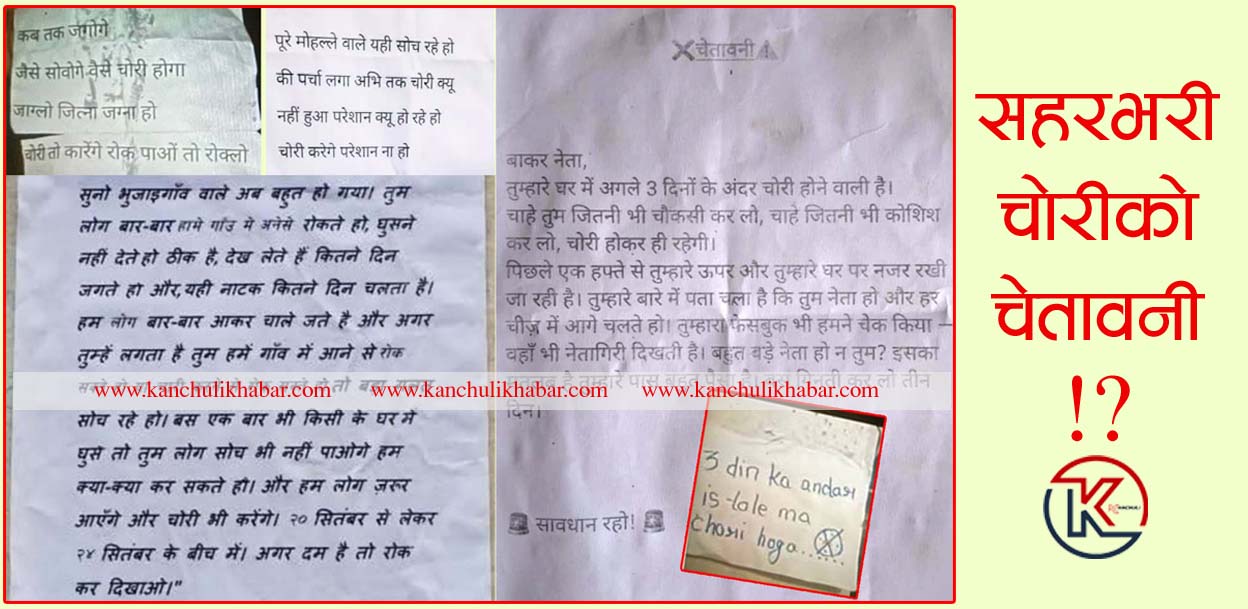 कब तक जगोगे
जैसे सोवोगे वैसे चोरी होगा
जाग्लो जित्ना जग्ना हो
चोरी तो कारेंगे रोक पाओं तो रोक्लो
पूरे मोहल्ले वाले यही सोच रहे हो
की पर्चा लगा अभि तक चोरी क्यू
नहीं हुआ परेशान क्यू हो रहे हो
चोरी करेंगे परेशान ना हो
सुनो भुजाइगाँव वाले अब बहुत हो गया। तुम
लोग बार-बार हामे गाँउ मे अनेसे रोकते हो, घुसने
नहीं देते हो ठीक है, देख लेते हैं कितने दिन
जगते हो और, यही नाटक कितने दिन चलता है।
हम लोग बार-बार आकर चाले जते है और अगर
तुम्हें लगता है तुम हमें गाँव में आने से रोक
तो बड़ा गलत
सोच रहे हो। बस एक बार भी किसी के घर में
घुसे तो तुम लोग सोच भी नहीं पाओगे हम
क्या-क्या कर सकते हो। और हम लोग ज़रूर
आएँगे और चोरी भी करेंगे। २० सितंबर से लेकर
२४ सितंबर के बीच में। अगर दम है तो रोक
कर दिखाओ।"
❌चेतावनी ⚠
बाकर नेता,
तुम्हारे घर में अगले 3 दिनों के अंदर चोरी होने वाली है।
चाहे तुम जितनी भी चौकसी कर लो, चाहे जितनी भी कोशिश
कर लो, चोरी होकर ही रहेगी।
पिछले एक हफ्ते से तुम्हारे ऊपर और तुम्हारे घर पर नजर रखी
जा रही है। तुम्हारे बारे में पता चला है कि तुम नेता हो और हर
चीज़ में आगे चलते हो। तुम्हारा फेसबुक भी हमने चेक किया –
वहाँ भी नेतागिरी दिखती है। बहुत बड़े नेता हो न तुम? इसका
मतलब है तुम्हारे पास बहुत पैसा है। अब गिनती कर लो तीन
दिन।
🚨 सावधान रहो! 🚨
3 din ka andar
is-tole ma
chori hoga...
www.kanchulikhabar.com www.kanchulikhabar.com www.kanchulikhabar.com
सहरभरी
चोरीको
चेतावनी
!?
K
KANCHULI